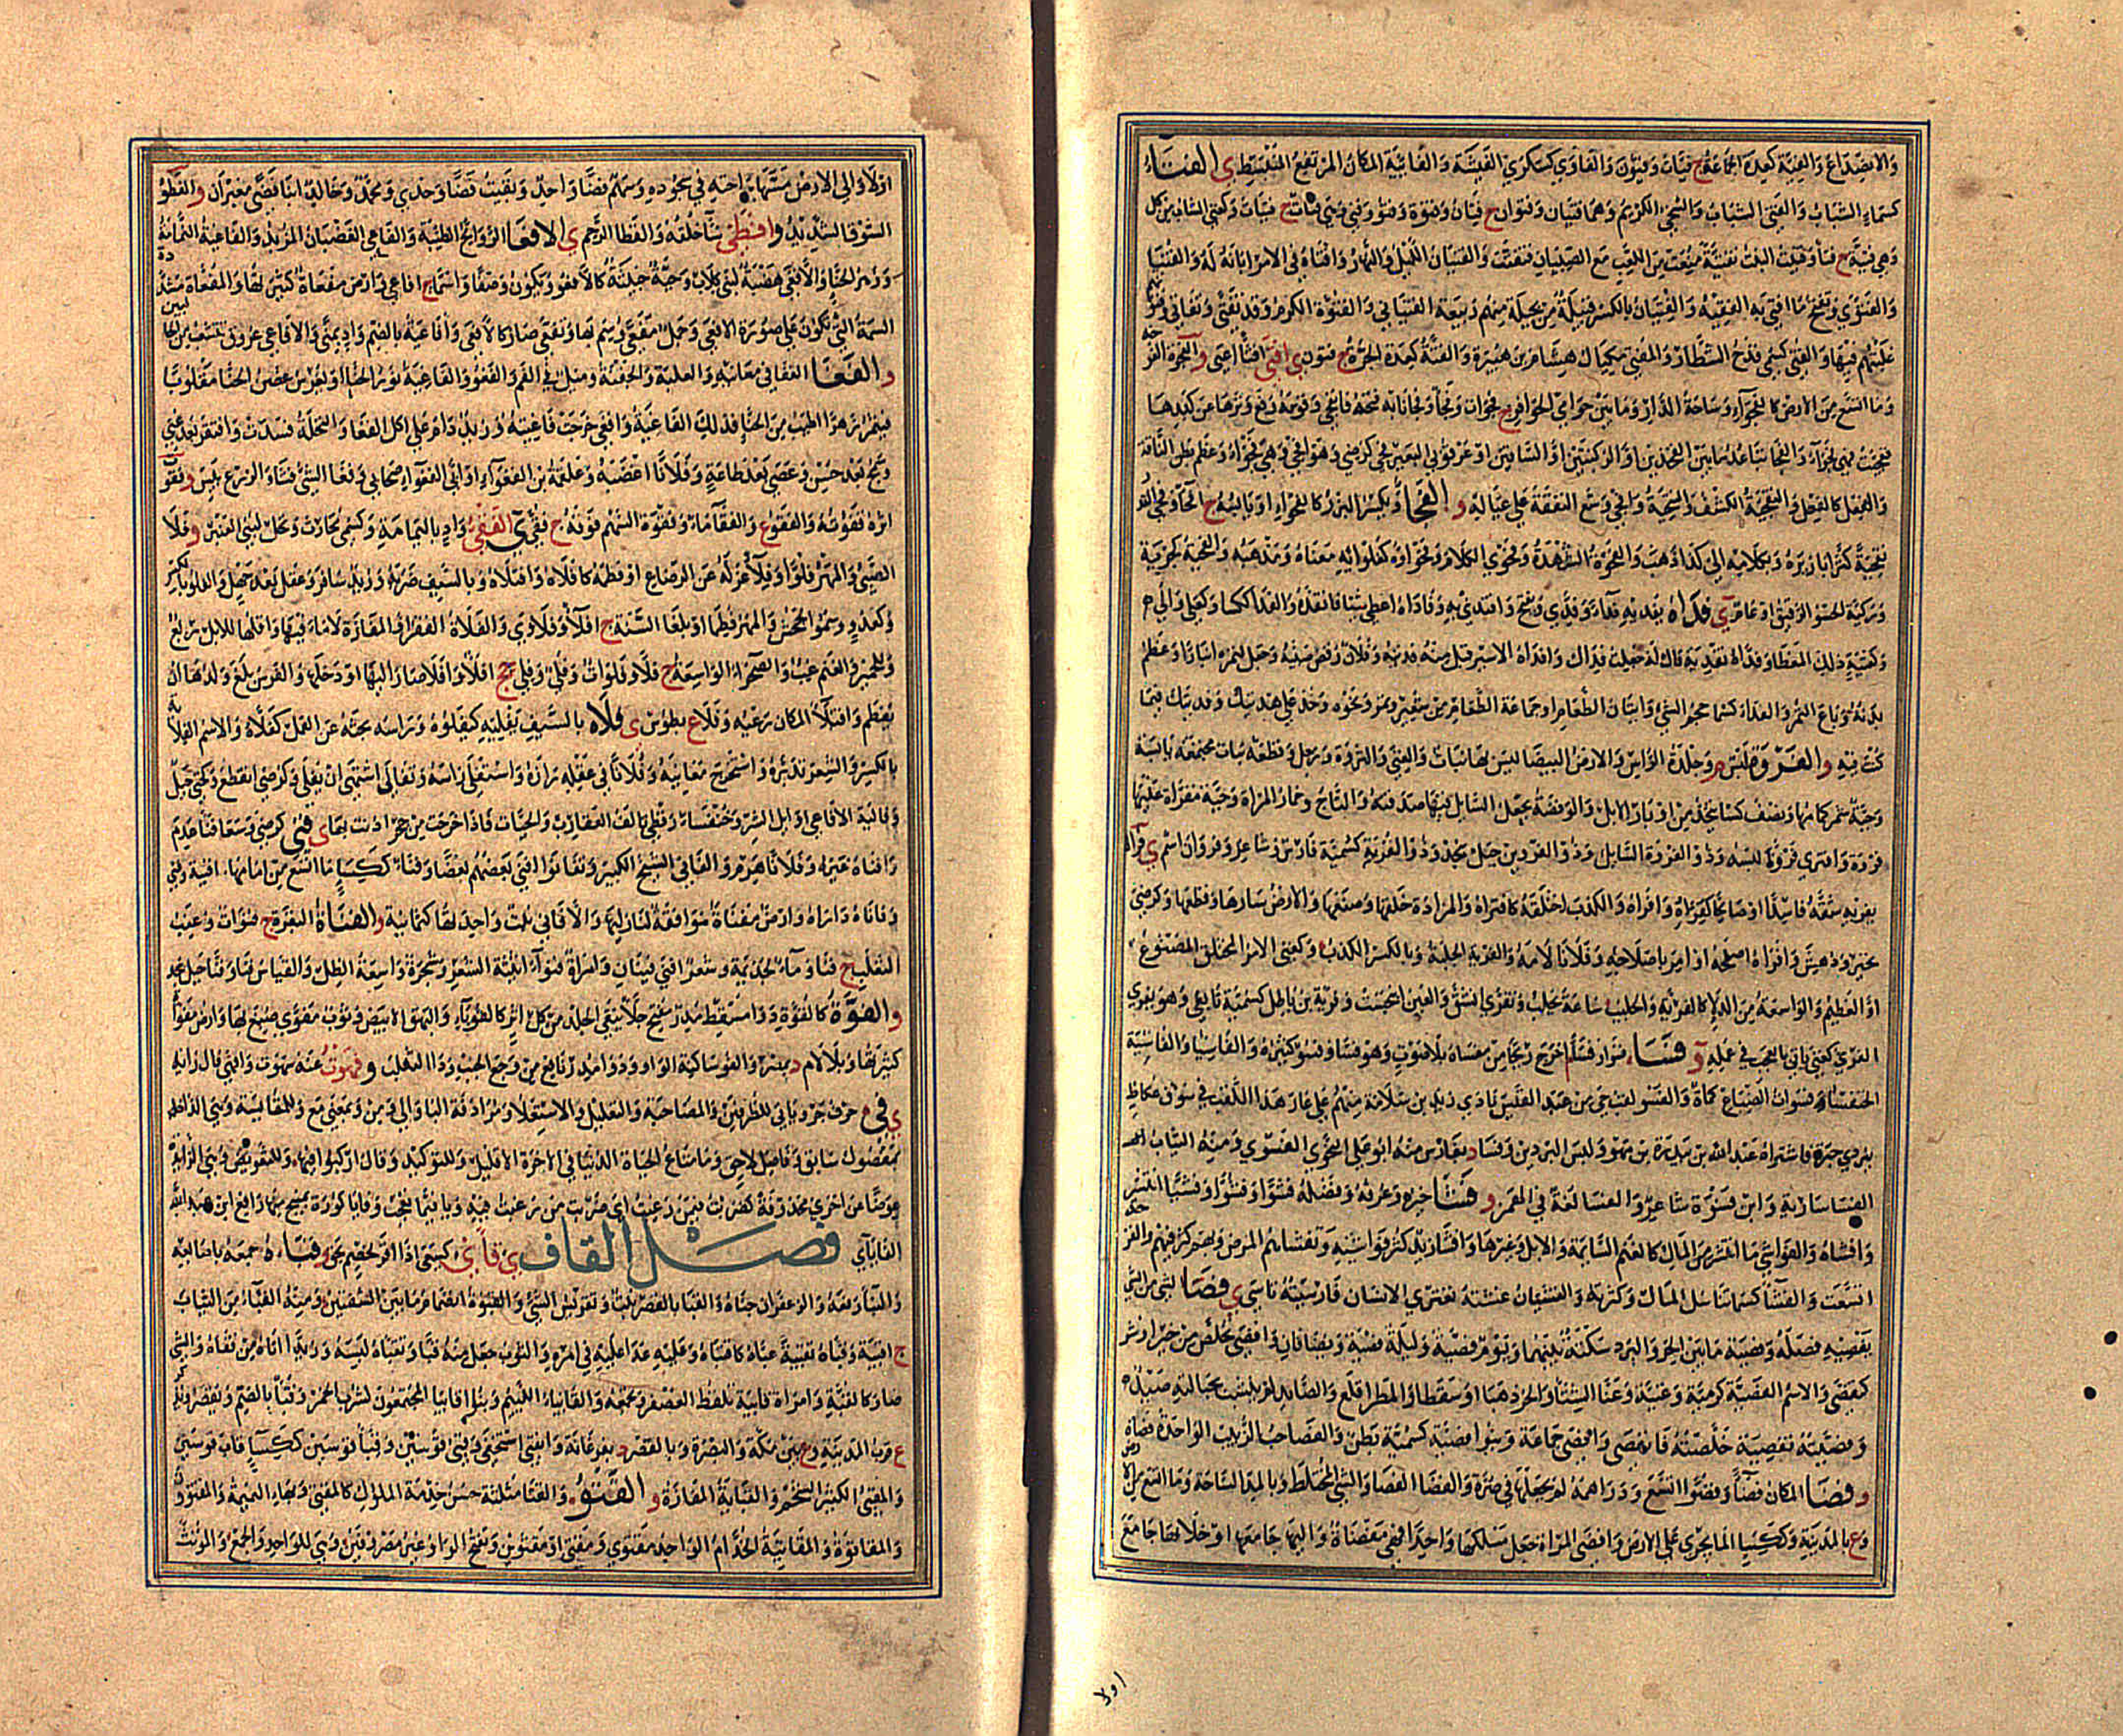 والانصداع والفئة كعدة الجماعة ج فئات وفئون والفاوى كسكرى الفيشة والفائية المكان المرتفع المنبسط ى الفتاء
كسماء الشباب والفتى الشاب والسخي الكريم وهما فتيان وفتوان ج فتيان وفتوة وفتو وفتي وهي فتاة ج فتيات وكغني الشاب من كل
وهي فتية ج فتاء وفتيت البنت تفتية منعت من اللعب مع الصبيان فتفتت والفتيان الليل والنهار وأفتاه في الأمر أبانه له والفتيا
والفتوى وتفتح ما أفتى به الفقيه والفتيان بالكسر قبيلة من بجيلة منهم ربيعة الفتياني والفتوة الكرم وقد تفتى وتفاتى
غلبتهم فيها والفتي كسمي قدح الشطار والمفتي مكيال هشام بن هبيرة والفتة كعدة الحرة ج فتون
وما اتسع من الأرض كالفجواء وساحة الدار وما بين حوامي الحوافر ج فجوات وفجاء وفجا بابه فتحه فانفجى وقوسه رفع وترها عن كبدها
ففجيت فهي فجواء والفجا تباعد ما بين الفخذين أو الركبتين أو الساقين أو عرقوبي البعير فجي كرضي وهو أفجى وهي فجواء وعظم بطن الناقة
والفعل كالفعل والتفجية الكشف والتنحية وأفجى وسع النفقة على عياله و الفحا ويكسر البزر كالفحواء أو يابسه ج أفحاء وفحى القدر
تفحية كثر أبازيره وبكلامه إلى كذا ذهب والفحوة الشهدة وفحوى الكلام وفحواؤه كغلوائه معناه ومذهبه
فداه يفديه فداء وفدى ويفتح وافتدى به وفاداه أعطى شيئا فأنقذه والفداء ككساء وكعلى وإلى
وكفتية ذلك المعطى وفداه تفدية قال له جعلت فداك وأفداه الأسير قبل منه فديته وفلان رقص صبيه وجعل لتمره أنبارا وعظم
بدنه وباع التمر والفداء كسماء حجم الشيء وأنبار الطعام أو جماعة الطعام من شعير وتمر ونحوه وخذ على هديتك وفديتك فيما
كنت فيه والفرو لبس م وجلدة الرأس والأرض البيضاء ليس بها نبات والغنى والثروة ورجل وقطعة نبات مجتمعة يابسة
وجبة شمر كماها ونصف كساء يتخذ من أوبار الإبل والوفضة يجعل السائل فيها صدقته والتاج وخمار المرأة وجبة مفراة عليها
فروة وافترى فروة لبسه وذو الفروة السائل وذو الفروين جبل بنجد وذو القرية كسمية فارس وشاعر وفروان اسم ى فراه
يفريه شقه فاسدا أو صالحا كفراه وأفراه والكذب اختلقه كافتراه والمزادة خلقها وصنعها والأرض سارها وقطعها وكرضي
تحير ودهش وأفراه أصلحه أو أمر بإصلاحه وفلانا لامه والفرية الجلبة وبالكسر الكذب وكغني الأمر المختلق المصنوع
أو العظيم والواسعة من الدلاء كالفرية والحليب ساعة يحلب وتفرى انشق والعين انبجست وفرية بن ماطل كسمية تابعي وهو يفري
الفري كغني يأتي بالعجب في عمله و فسا فسوا وفساء أخرج ريحا من مفساه بلا صوت وهو فساء وفسو كثيره والفاسياء والفاسية
الخنفساء وفسوات الضباع كمأة والفسو لقب حي من عبد القيس نادى زيد بن سلامة منهم على عار هذا اللقب في سوق عكاظ
ببردي حبرة فاشتراه عبد الله بن بيدرة بن مهو ولبس البردين وفسا د بفارس منه أبو علي النحوي الفسوي ومنه الثياب
الفساسارية وابن فسوة شاعر والفسا لغة في الهمز و فشا خبره وعرفه وفضله فشوا وفشوا وفشيا انتشر
وأفشاه والفواشي ما انتشر من المال كالغنم السائمة والإبل وغيرها وأفشى زيد كثر فواشيه وتفشاهم المرض وبهم كثر فيهم والقرحة
اتسعت والفشاء كسماء تناسل المال وكثرته والفشيان غشية تعتري الإنسان فارسيته تاسى ى فصى الشيء من الشيء
يفصيه فصله وفصية ما بين الحر والبرد سكتة بينهما ويوم فصية وليلة فصية ويضافان وأفصى تخلص من خير أو شر
كتفصى والاسم الفصية كرمية وغنية وعنا الشتاء والحر ذهبا أو سقطا والمطر أقلع والصائد لم ينشب بحبالته صيد
وفصيته تفصية خلصته فانفصى وأفصى جماعة وبنو فصية كسمية بطن والفصا حب الزبيب الواحدة فصاة
و فضا المكان فضاء وفضوا اتسع ودراهمه لم يجعلها في صرة والفضا الفصا والشيء المختلط وبالمد الساحة وما اتسع من الأرض
وع بالمدينة وككساء الماء يجري على الأرض وأفضى المرأة جعل مسلكيها واحدا فهي مفضاة وإليها جامعها أو خلا بها جامع
اولا
أو لا وإلى الأرض مسها براحته في سجوده وسهم فضا واحد وبقيت فضا وحدي ومحمد وخالد ابنا فضاء معبران والفطو
السوق الشديد وأفطى ساء خلقه والفظا الرحم ى الأفعاء الروائح الطيبة والفاعي الغضبان المزبد والفاعية النمامة
وزهر الحناء والأفعى هضبة لبني كلاب وحية خبيثة كالأفعو ويكون وصفا واسما ج أفاعي وأرض مفعاة كثيرتها والمفعاة مشددة
السمة التي تكون على صورة الأفعى وجمل مفعى وسم بها وتفعى صار كالأفعى وأفاعية بالضم واد بمنى والأفاعي عروق تتشعب من الحالبين
و الفغا الغفا في معانيه والعلبة والجفنة وميل في الفم والفغو والفاغية نور الحناء أو يغرس غصن الحناء مقلوبا
فيثمر زهرا أطيب من الحناء فذلك الفاغية وأفغى خرجت فاغيته وزيد دام على أكل الفغا والنخلة فسدت وافتقر بعد غنى
وسمج بعد حسن وعصى بعد طاعة وفلانا أغضبه وعلقمة بن الفغواء أو ابن أبي الفغواء صحابي وفغا الشيء فشا والزرع يبس و فقوت
أثره قفوته والفقو ع والفقأ ماء وفقوة السهم فوقه ج فقى ى الفقي واد باليمامة وكسمي محارث ونخل لبني العنبر و فلا
الصبي والمهر فلوا وفلاء عزله عن الرضاع أو فطمه كأفلاه وافتلاه وبالسيف ضربه وزيد سافر وعقل بعد جهل والفلو بالكسر
وكعدو وسمو الجحش والمهر فطما أو بلغا السنة ج أفلاء وفلاوى والفلاة القفر أو المفازة لا ماء فيها وأقلها للإبل ربع
وللحمير والغنم غب والصحراء الواسعة ج فلا وفلوات وفلي وفلي جج أفلاء وأفلى صار إليها أو دخلها والفرس بلغ ولدها أن
يفطم وافتلى المكان رعيه وفلا ع بطوس ى فلاه بالسيف يفليه كيفلوه ورأسه بحثه عن القمل كفلاه والاسم الفلاية
بالكسر والشعر تدبره واستخرج معانيه وفلانا في عقله رازه واستفلى رأسه وتفالى اشتهى أن يفلى وكرضي انقطع وكحتى جبل
وفالية الأفاعي أوائل الشر وخنفساء رقطاء تألف العقارب والحيات فإذا خرجت من جحر آذنت بها ى فني كرضي وسعى فناء عدم
وأفناه غيره وفلان هرم والفاني الشيخ الكبير وتفانوا أفنى بعضهم بعضا وفناء ككساء ما اتسع من أمامها أفنية وفني
وفاناه داراه وأرض مفناة موافقة لنازليها والأفاني نبت واحدتها كثمانية و الفناة البقرة ج فنوات وعنب
الثعلب ج فنا وماء لجذيمة وشعر أفنى فينان وامرأة فنواء أثيثة الشعر وشجرة واسعة الظل والقياس فناء وفنا جبل بنجد
و الفوة كالقوة دواء مسقط مدر مفتح جلاء ينقي الجلد من كل أثر كالقوباء والبهق الأبيض وثوب مفوى صبغ بها وأرض مفواة
كثيرتها وبلا لام د بمصر والفو ساكنة الواو دواء نافع من وجع الجنب وداء الثعلب و فهوت عنه سهوت والفهي قال رأيه
ى في حرف جر ويأتي للظرفية والمصاحبة والتعليل والاستعلاء ومرادفة الباء وإلى ومن وبمعنى مع وللمقايسة وهي الداخلة
بمفضول سابق وفاضل لاحق وما متاع الحياة الدنيا في الآخرة إلا قليل وللتوكيد وقال اركبوا فيها وللتعويض وهي الزائدة
عوضا عن أخرى محذوفة كضربت فيمن رغبت أي ضربت من رغبت فيه
الفايآي فصل القاف ى قأى كسعى إذا أقر لخصم بحق و قباه جمعه بأصابعه
والبناء رفعه والزعفران جناه والقبا بالقصر نبت وتقويس الشيء والقبوة انضمام ما بين الشفتين ومنه القباء من الثياب
ج أقبية وقباه تقبية عباه كاقتباه وعليه عدا عليه في أمره والثوب جعل منه قباء وتقباه لبسه وزيدا أتاه من قفاه والشيء
صار كالقبة وامرأة قابية تلقط العصفر وتجمعه والقابياء اللئيم وبنو قابياء المجتمعون لشرب الخمر وقباء بالضم ويذكر ويقصر
ع قرب المدينة وع بين مكة والبصرة وبالقصر د بفرغانة وانقبى استخفى وقبي قوسين وقباء قوسين ككساء قاب قوسين
والمقبى الكثير الشحم والقباية المفازة و القتو والقتا مثلثة حسن خدمة الملوك كالمقتى وبهاء النميمة والمقتوون
والمقاتوة والمقاتية الخدام الواحد مقتوي ومقتى أو مقتوين وتفتح الواو غير مصروفين وهي للواحد والجمع والمؤنث